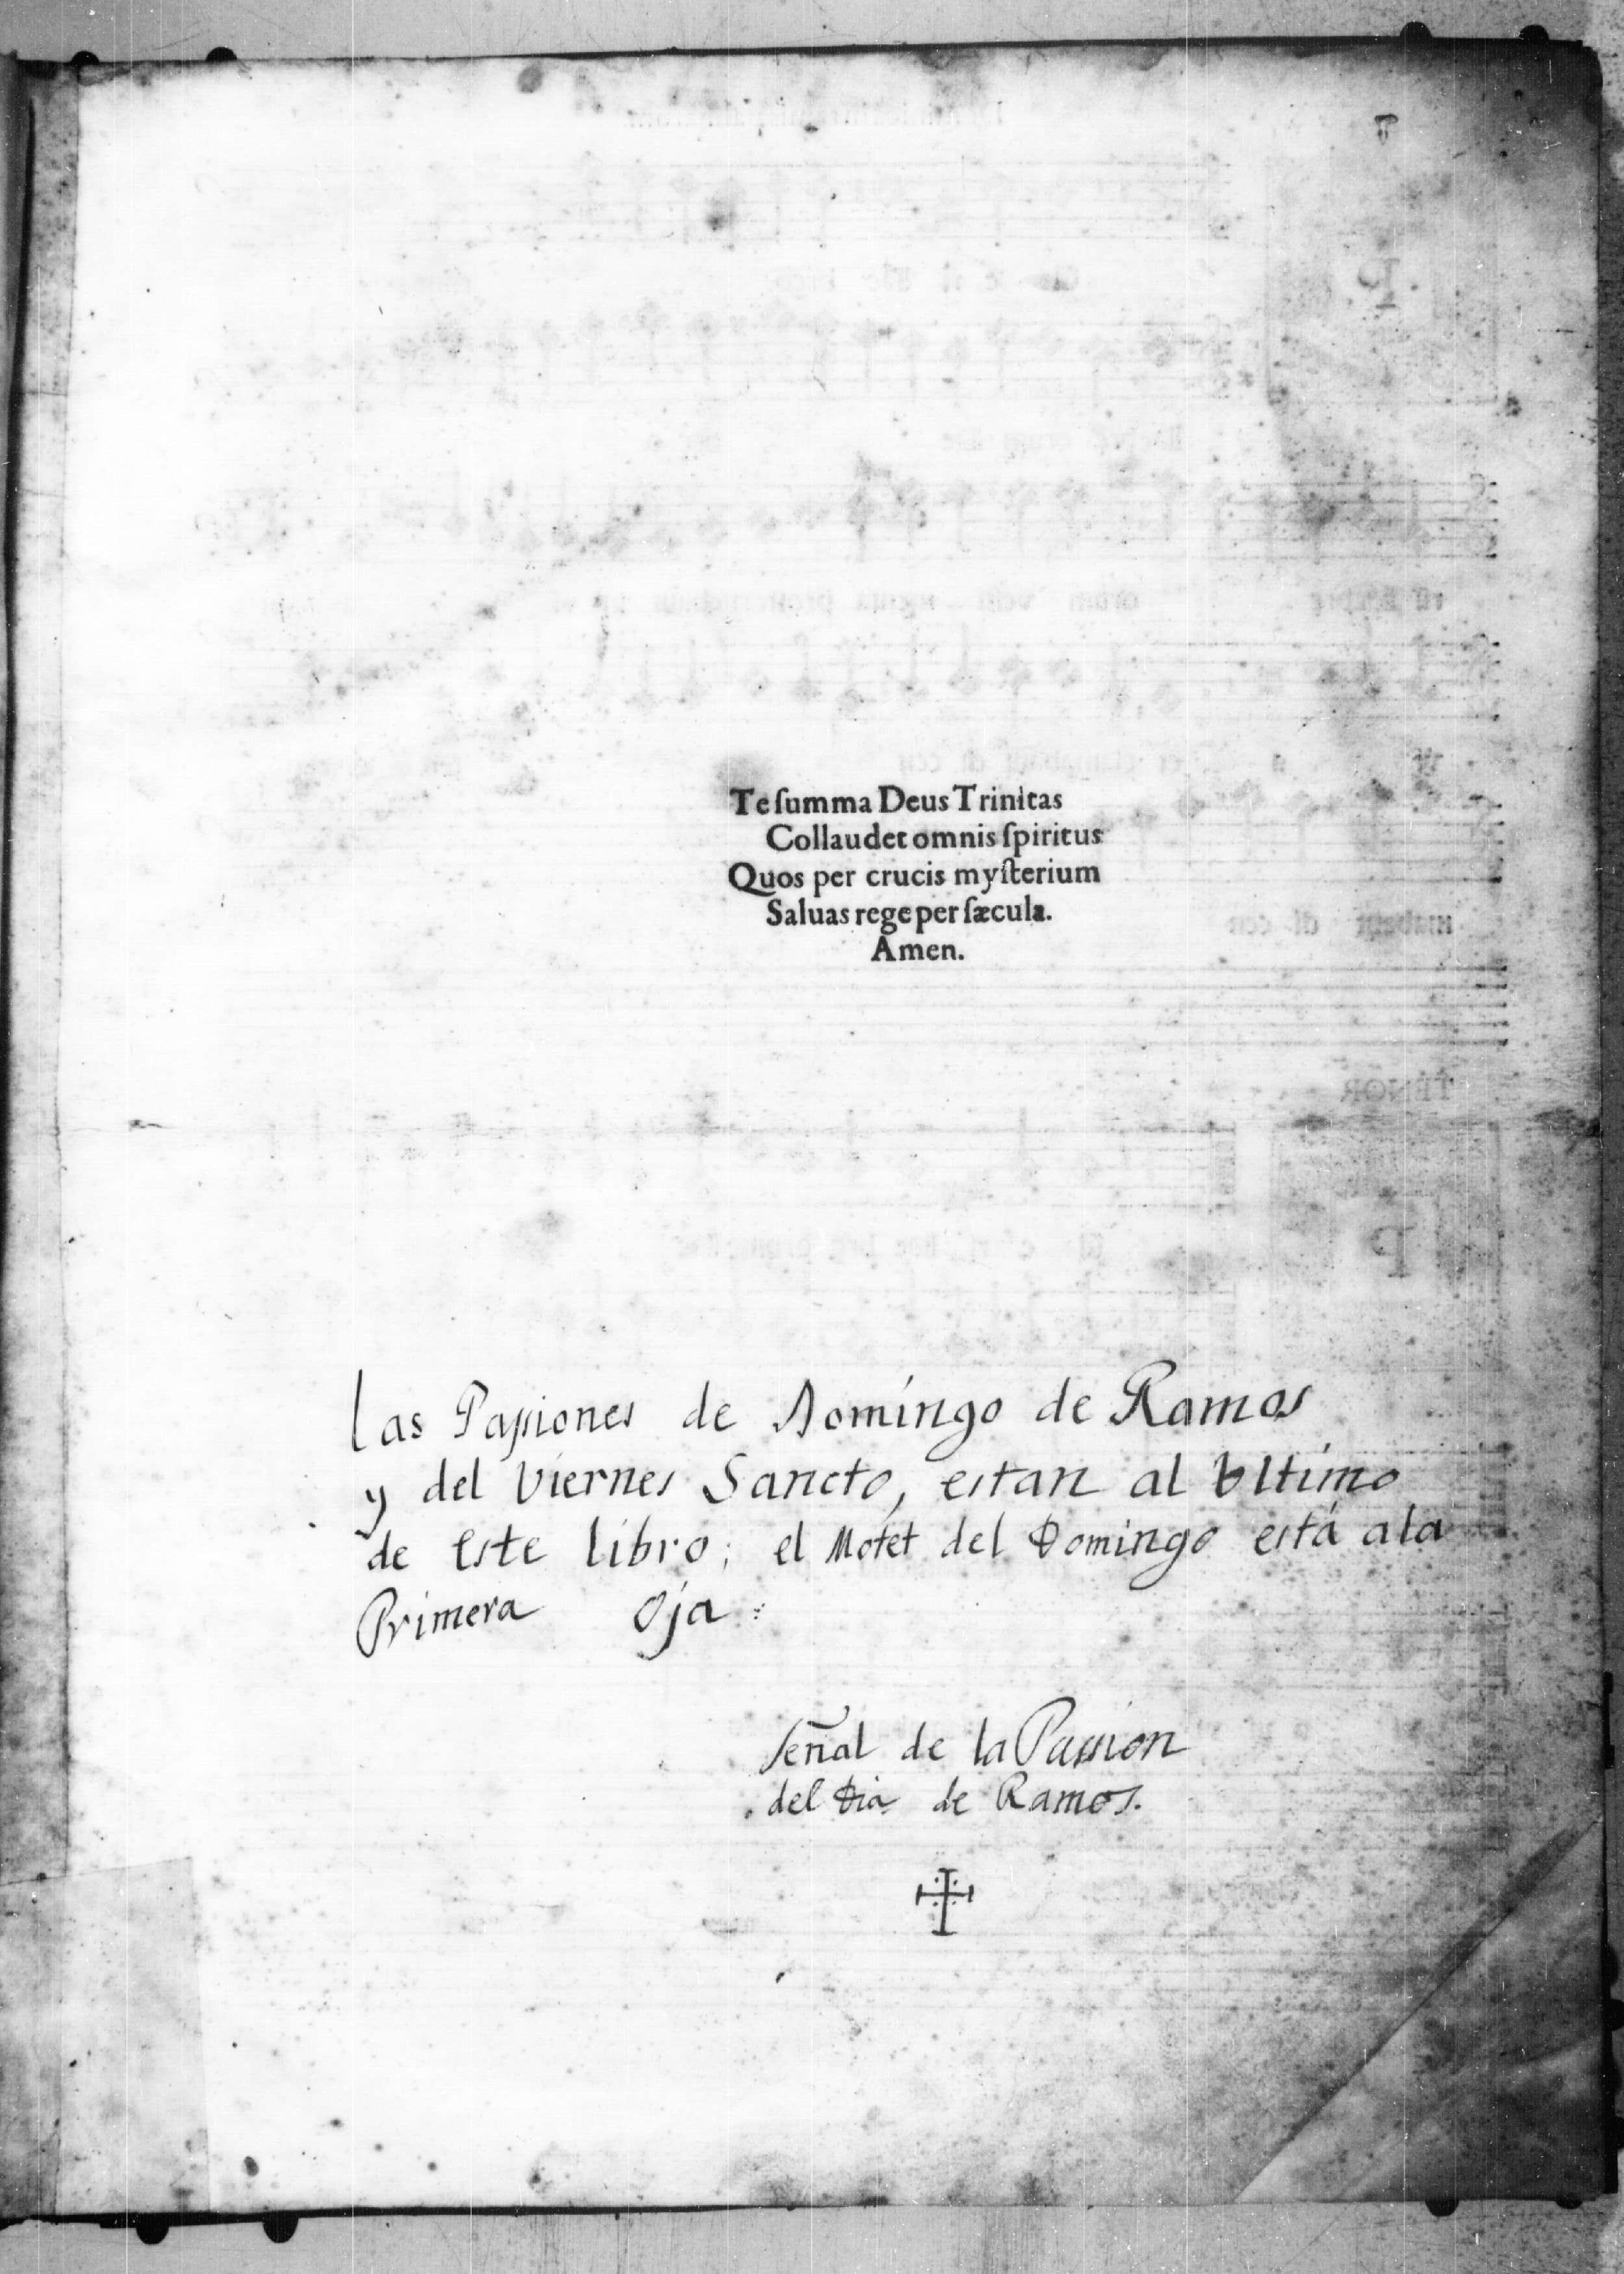 Te ſumma Deus Trinitas
Collaudet omnis ſpiritus
Quos per crucis myſterium
Saluas rege per ſæcula.
Amen.
las Passiones de Domingo de Ramos
y del Viernes Sancto, estan al Vltimo
de este libro; el Motet del Domingo está ala
Primera Oja
Señal de la Passion
del Dia de Ramos.
TENOR
P